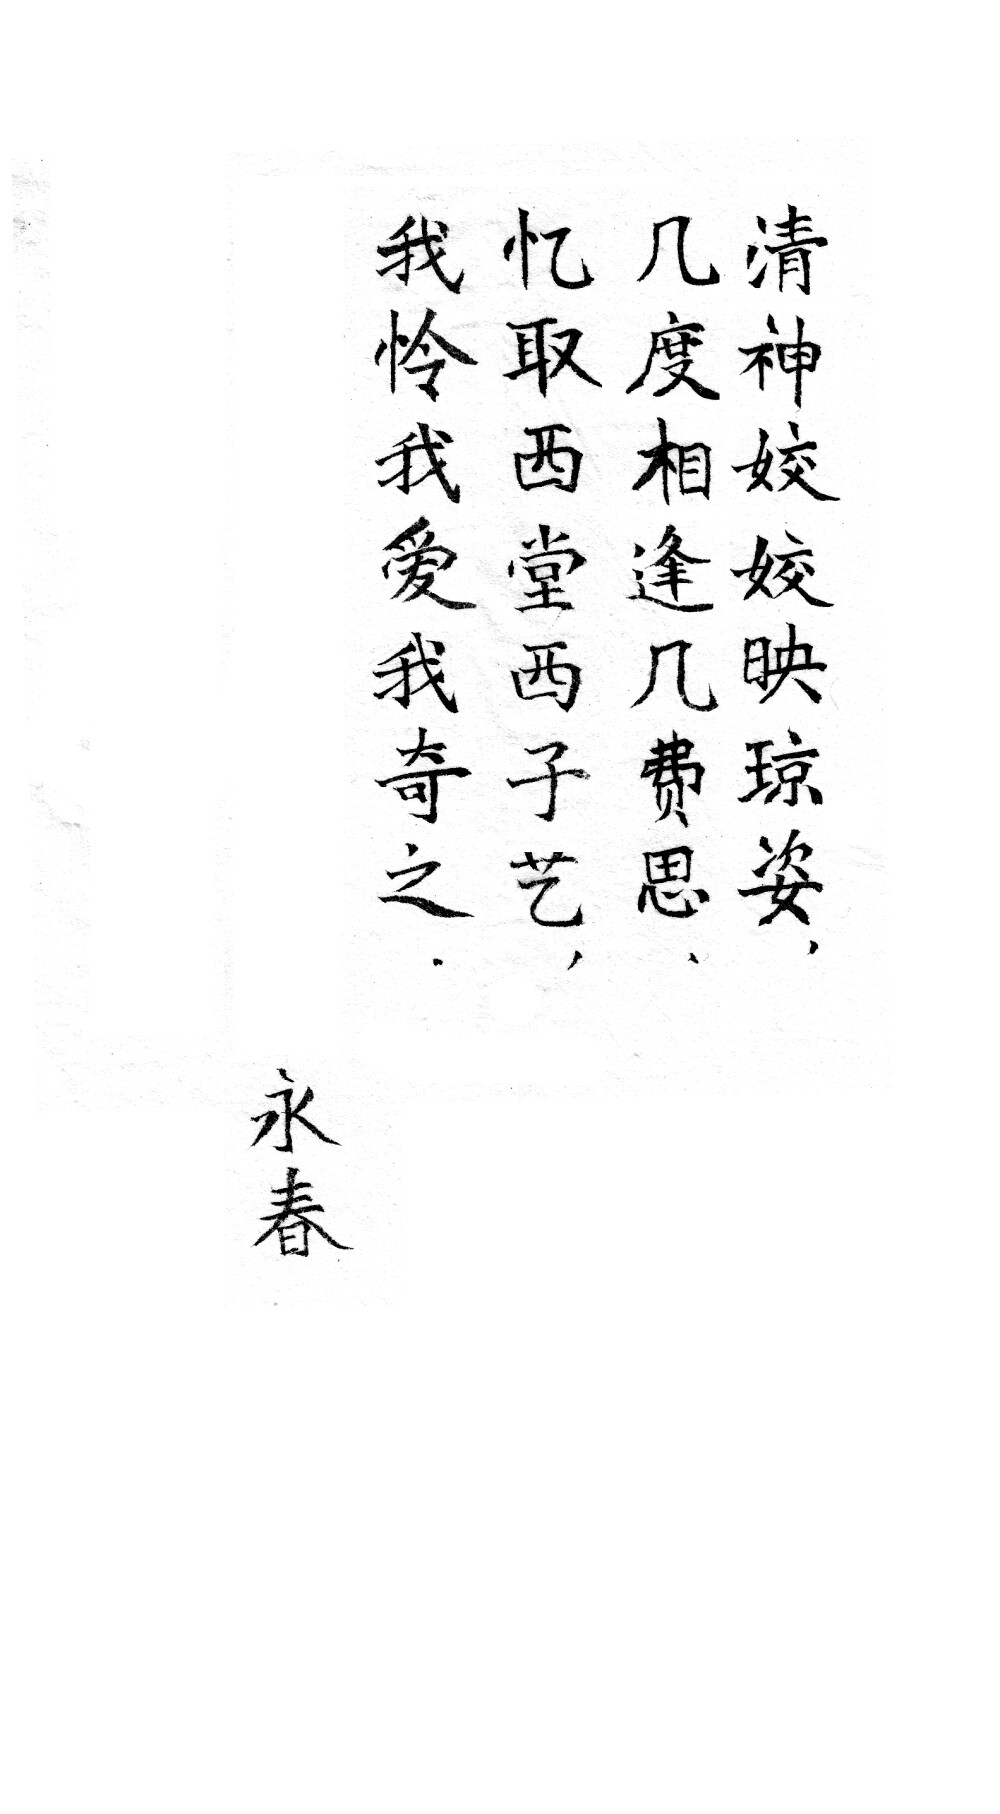 清神姣姣映琼姿，
几度相逢几费思、
忆取西堂西子艺，
我怜我爱我奇之.
永春